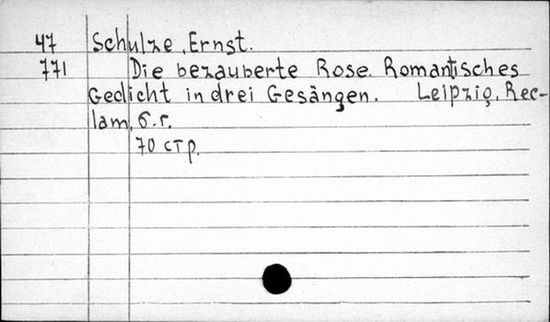 47 Schulze, Ernst.
771 Die bezauberte Rose. Romantisches
Gedicht in drei Gesängen. Leipzig, Rec-
lam, б.г.
70 стр.